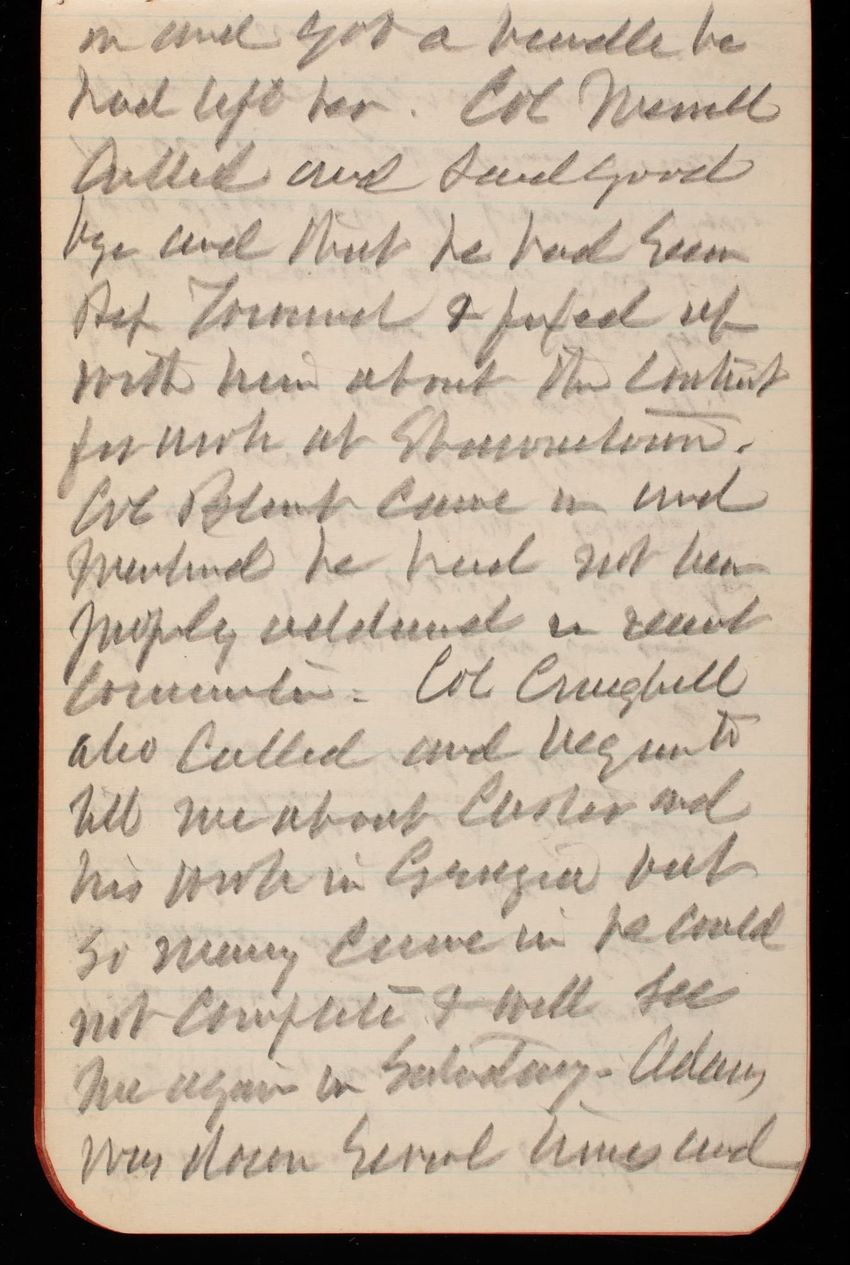 in and got a bundle he
had left her. Col Merrill
Called and said good
bye and that he had seen
Rep & fixed up
with him about the Contract
for work at
Col Blunt came in and
mentioned he had not been
properly addressed in recent
Col Craighill
also Called and began to
tell me about Carter and
his work in Georgia but
so many came in he could
not complete & will see
me again on Saturday. Adams
was down several times and